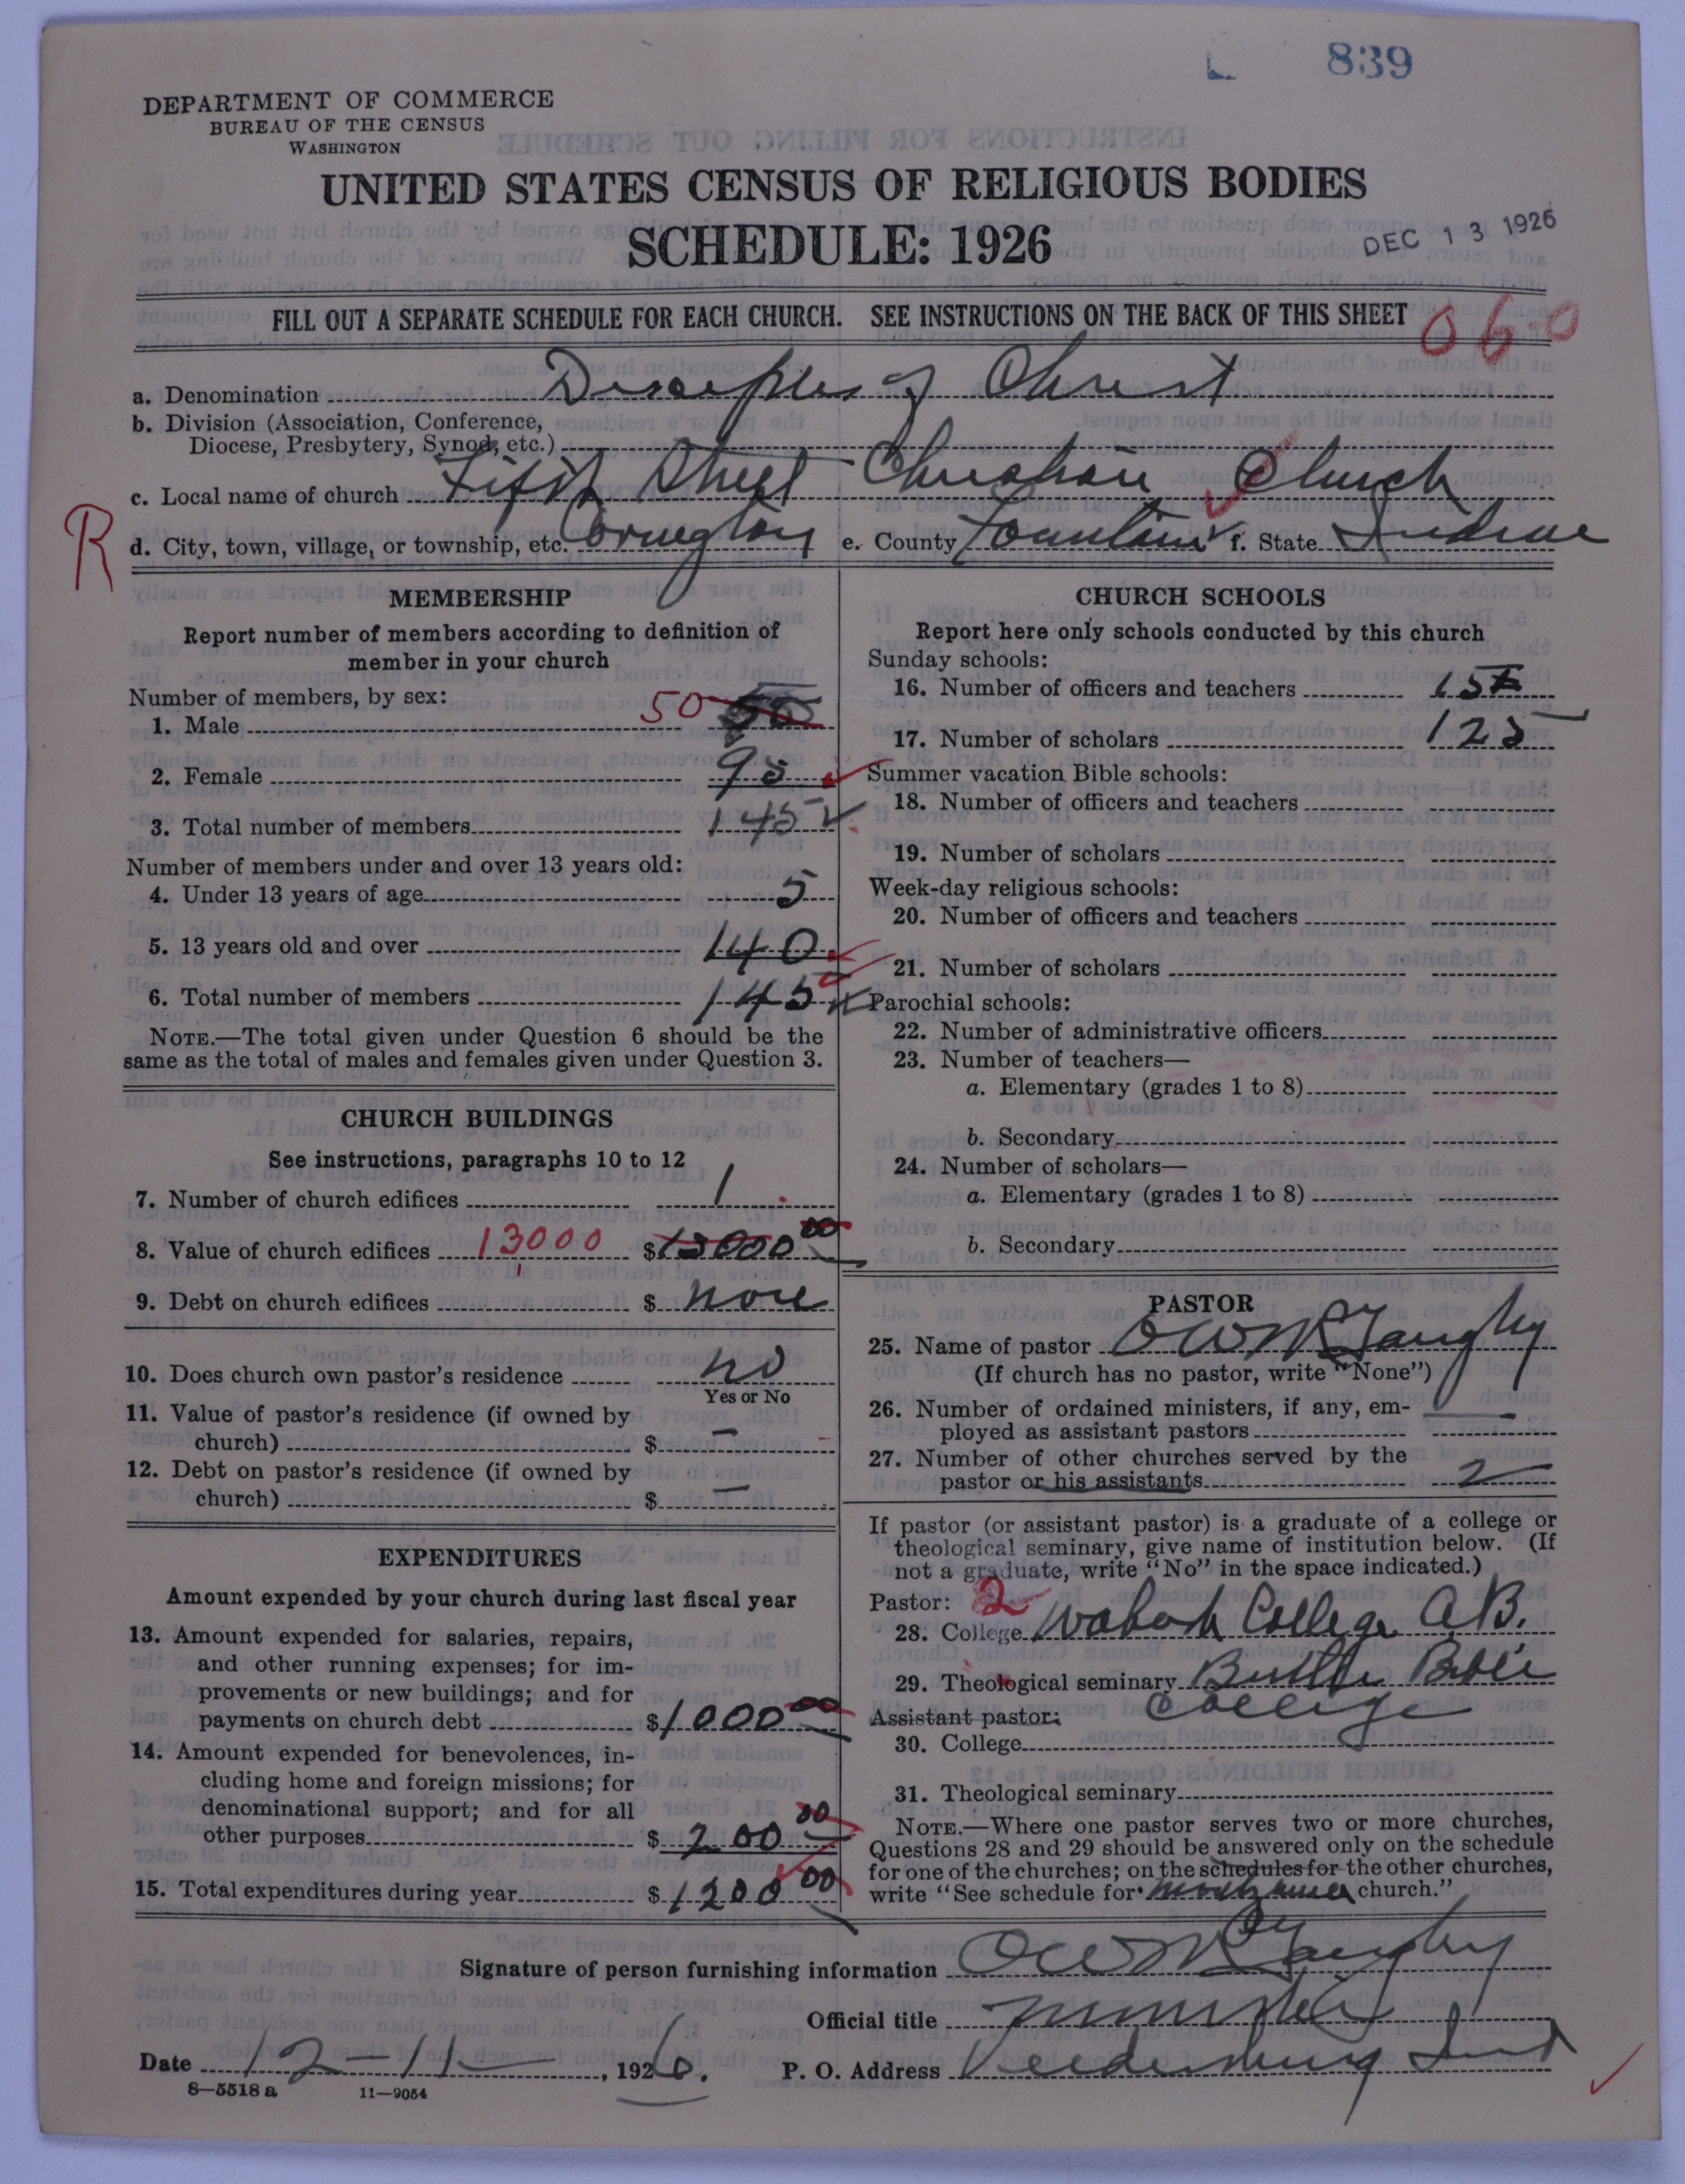 839
DEPARTMENT OF COMMERCE
BUREAU OF THE CENSUS
WASHINGTON
UNITED STATES CENSUS OF RELIGIOUS BODIES
SCHEDULE: 1926
DEC 13 1926
FILL OUT A SEPARATE SCHEDULE FOR EACH CHURCH. SEE INSTRUCTIONS ON THE BACK OF THIS SHEET
060
a. Denomination Disciples of Christ
b. Division (Association, Conference,
Diocese, Presbytery, Synod, etc.)
c. Local name of church Fifth Street Christian Church
R
d. City, town, village, or township, etc. Covington e. County Fountain f. State Indiana
MEMBERSHIP
Report number of members according to definition of
member in your church
Number of members, by sex:
1. Male 50
2. Female 95
3. Total number of members 145
Number of members under and over 13 years old:
4. Under 13 years of age 5
5. 13 years old and over 140
6. Total number of members 145
NOTE.—The total given under Question 6 should be the
same as the total of males and females given under Question 3.
CHURCH BUILDINGS
See instructions, paragraphs 10 to 12
7. Number of church edifices 1
8. Value of church edifices 13000 $13000 00
9. Debt on church edifices $ none
10. Does church own pastor's residence no
Yes or No
11. Value of pastor's residence (if owned by
church) $ –
12. Debt on pastor's residence (if owned by
church) $ –
EXPENDITURES
Amount expended by your church during last fiscal year
13. Amount expended for salaries, repairs,
and other running expenses; for im-
provements or new buildings; and for
payments on church debt $1000 00
14. Amount expended for benevolences, in-
cluding home and foreign missions; for
denominational support; and for all
other purposes $ 200 00
15. Total expenditures during year $1200 00
CHURCH SCHOOLS
Report here only schools conducted by this church
Sunday schools:
16. Number of officers and teachers 15
17. Number of scholars 125
Summer vacation Bible schools:
18. Number of officers and teachers
19. Number of scholars
Week-day religious schools:
20. Number of officers and teachers
21. Number of scholars
Parochial schools:
22. Number of administrative officers
23. Number of teachers—
a. Elementary (grades 1 to 8)
b. Secondary
24. Number of scholars—
a. Elementary (grades 1 to 8)
b. Secondary
PASTOR
25. Name of pastor O W McGaughey
(If church has no pastor, write "None")
26. Number of ordained ministers, if any, em-
ployed as assistant pastors
27. Number of other churches served by the
pastor or his assistants 2
If pastor (or assistant pastor) is a graduate of a college or
theological seminary, give name of institution below. (If
not a graduate, write "No" in the space indicated.)
Pastor: 2
28. College Wabash College A.B.
29. Theological seminary Butler Bible
College
Assistant pastor:
30. College
31. Theological seminary
NOTE.—Where one pastor serves two or more churches,
Questions 28 and 29 should be answered only on the schedule
for one of the churches; on the schedules for the other churches,
write "See schedule for church."
Signature of person furnishing information O W McGaughey
Official title Minister
Date 12–11 , 1926. P. O. Address Veedersburg Ind
8–5518 a 11–9054